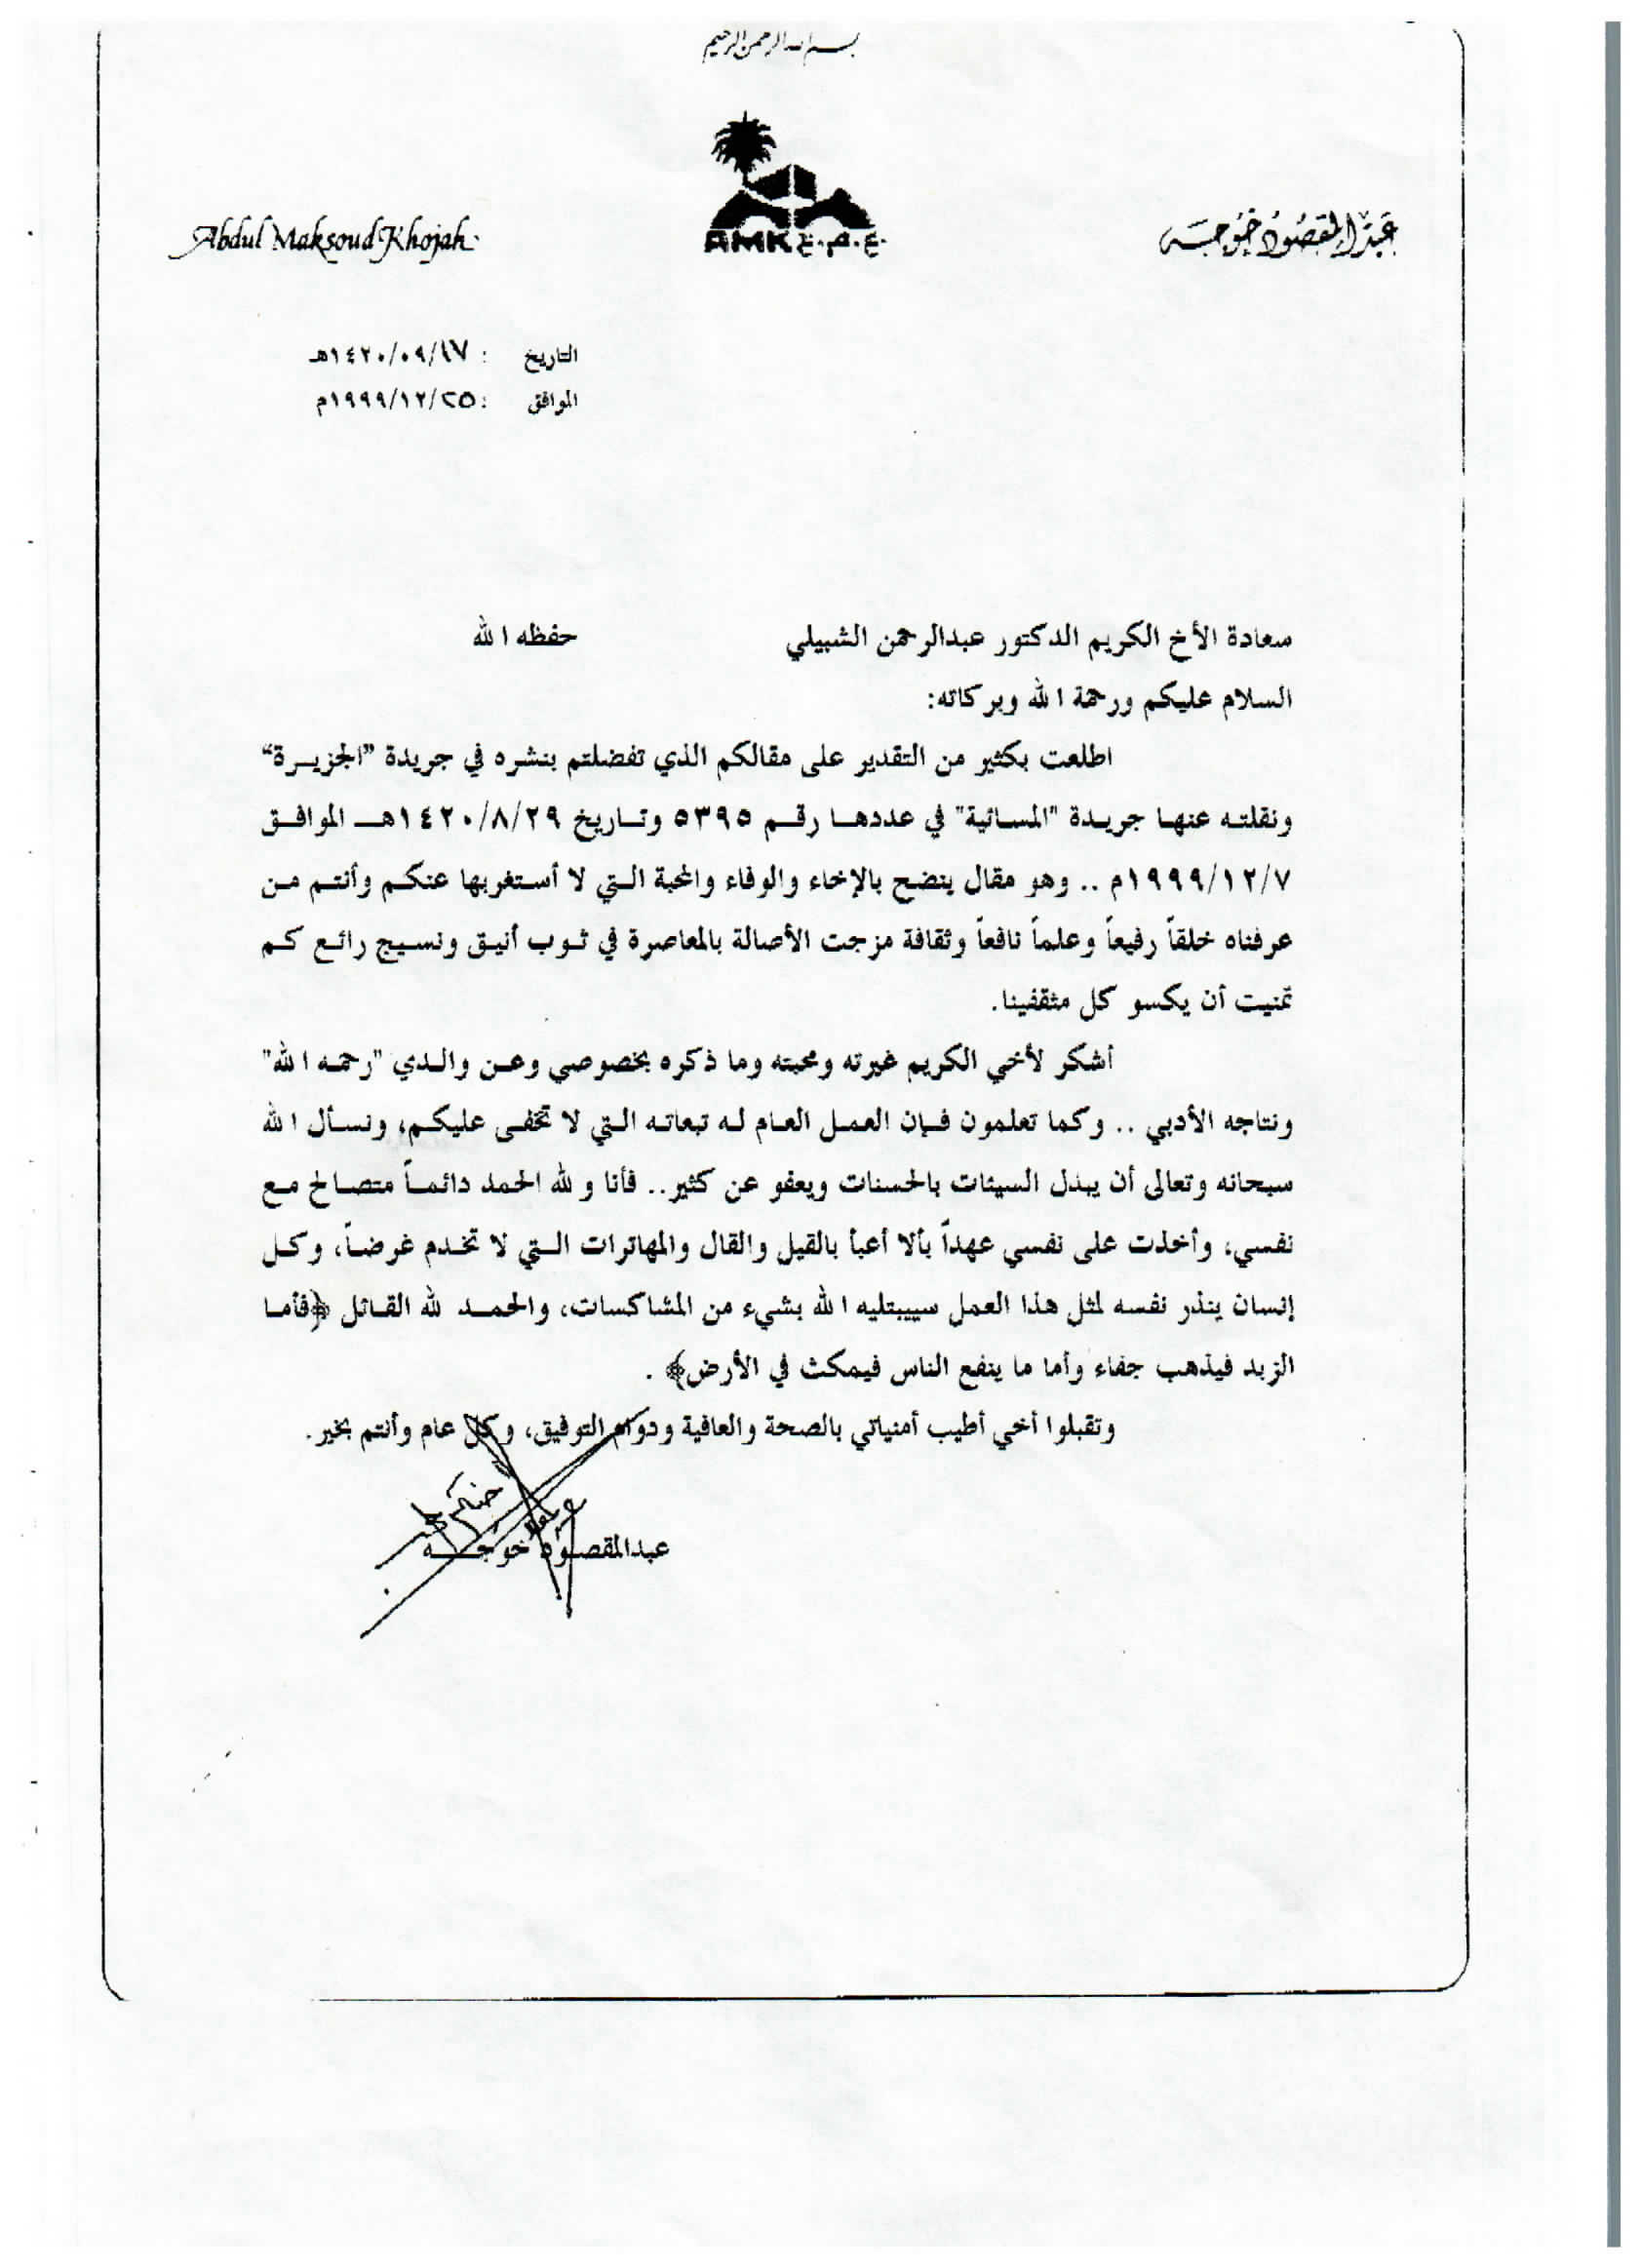 بسم الله الرحمن الرحيم
عبد المقصود خوجه
AMK ع.م.خ.
Abdul Maksoud Khojah
التاريخ : ١٤٢٠/٠٩/١٧هـ
الموافق : ١٩٩٩/١٢/٢٥م
سعادة الأخ الكريم الدكتور عبدالرحمن الشبيلي حفظه الله
السلام عليكم ورحمة الله وبركاته:
اطلعت بكثير من التقدير على مقالكم الذي تفضلتم بنشره في جريدة "الجزيرة"
ونقلته عنها جريدة "المسائية" في عددها رقم ٥٣٩٥ وتاريخ ١٤٢٠/٨/٢٩هـ الموافق
١٩٩٩/١٢/٧م .. وهو مقال ينضح بالإخاء والوفاء والمحبة التي لا أستغربها عنكم وأنتم من
عرفناه خلقاً رفيعاً وعلماً نافعاً وثقافة مزجت الأصالة بالمعاصرة في ثوب أنيق ونسيج رائع كم
تمنيت أن يكسو كل مثقفينا.
أشكر لأخي الكريم غيرته ومحبته وما ذكره بخصوصي وعن والدي "رحمه الله"
ونتاجه الأدبي .. وكما تعلمون فإن العمل العام له تبعاته التي لا تخفى عليكم، ونسأل الله
سبحانه وتعالى أن يبدل السيئات بالحسنات ويعفو عن كثير.. فأنا ولله الحمد دائماً متصالح مع
نفسي، وأخذت على نفسي عهداً بألا أعبأ بالقيل والقال والمهاترات التي لا تخدم غرضاً، وكل
إنسان ينذر نفسه لمثل هذا العمل سيبتليه الله بشيء من المشاكسات، والحمد لله القائل ﴿فأما
الزبد فيذهب جفاء وأما ما ينفع الناس فيمكث في الأرض﴾ .
وتقبلوا أخي أطيب أمنياتي بالصحة والعافية ودوام التوفيق، وكل عام وأنتم بخير.
عبدالمقصود خوجه